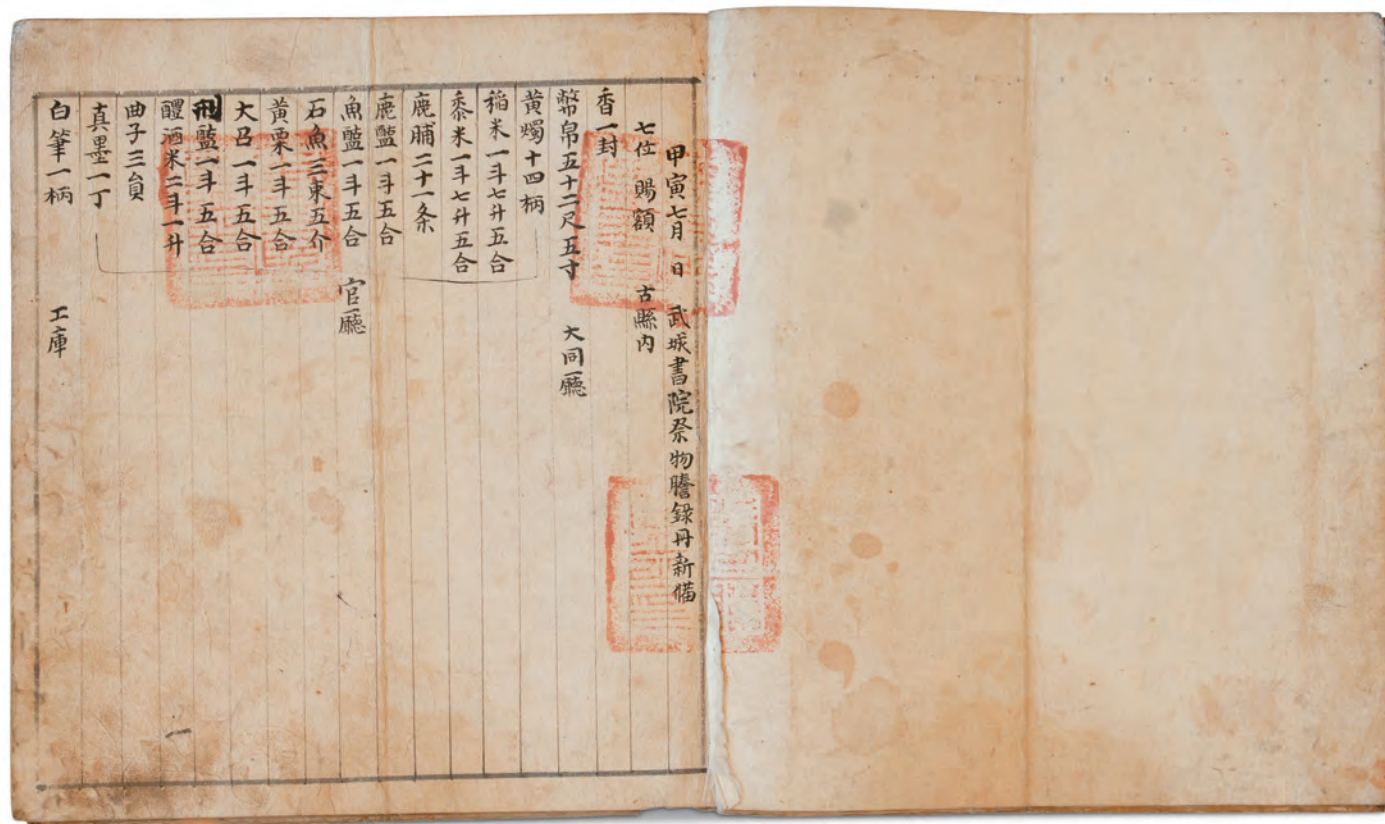 甲寅七月 日 武城書院祭物謄錄冊新備
七位 賜額 古縣內
香一封
幣帛五十二尺五寸 大同廳
黃燭十四柄
稻米一斗七升五合
黍米一斗七升五合
鹿脯二十一条
鹿醢一斗五合
魚醢一斗五合 官廳
石魚三束五介
黃栗一斗五合
大召一斗五合
醢一斗五合
醴酒米二斗一升
曲子三員
真墨一丁
白筆一柄 工庫